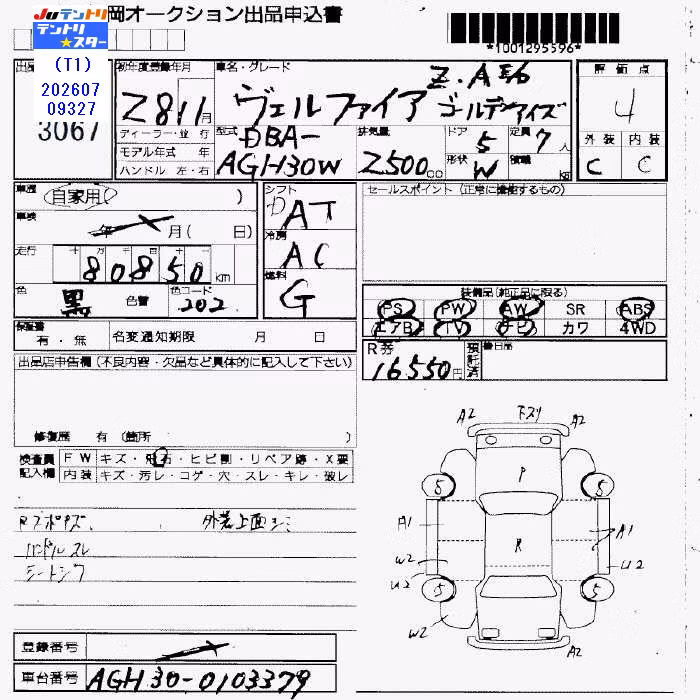 JUテントリ
テントリ★スター
岡オークション出品申込書
*1001295596*
(T1)
202607
09327
3067
初年度登録年月
Z8年11月
車名・グレード
Z.A
ヴェルファイア ゴールデンアイズ
評価点
4
外装 内装
C C
ディーラー・並行
モデル年式 年
ハンドル 左・右
型式
DBA-
AGH30W
排気量
2500cc
ドア
5
定員
7人
形状
W
積載
kg
車歴
自家用 )
車検
年 月( 日)
走行
80850km
色
黒
色替
色コード
202
シフト
DAT
冷房
AC
燃料
G
セールスポイント(正常に機能するもの)
装備品(純正品に限る)
PS PW AW SR ABS
エアB TV ナビ カワ 4WD
保証書
有・無
名変通知期限 月 日
R券
16,550円
預託済
後日品
出品店申告欄(不良内容・欠品など具体的に記入して下さい)
修復歴 有(箇所 )
検査員記入欄
FW キズ・飛石・ヒビ割・リペア跡・X要
内装 キズ・汚レ・コゲ・穴・スレ・キレ・破レ
外装上面シミ
ハンドルスレ
A2 下スリ A2
5 P 5
A1 R A1
W2
U2 U2
5 5
W2
A2
登録番号
車台番号 AGH30-0103379